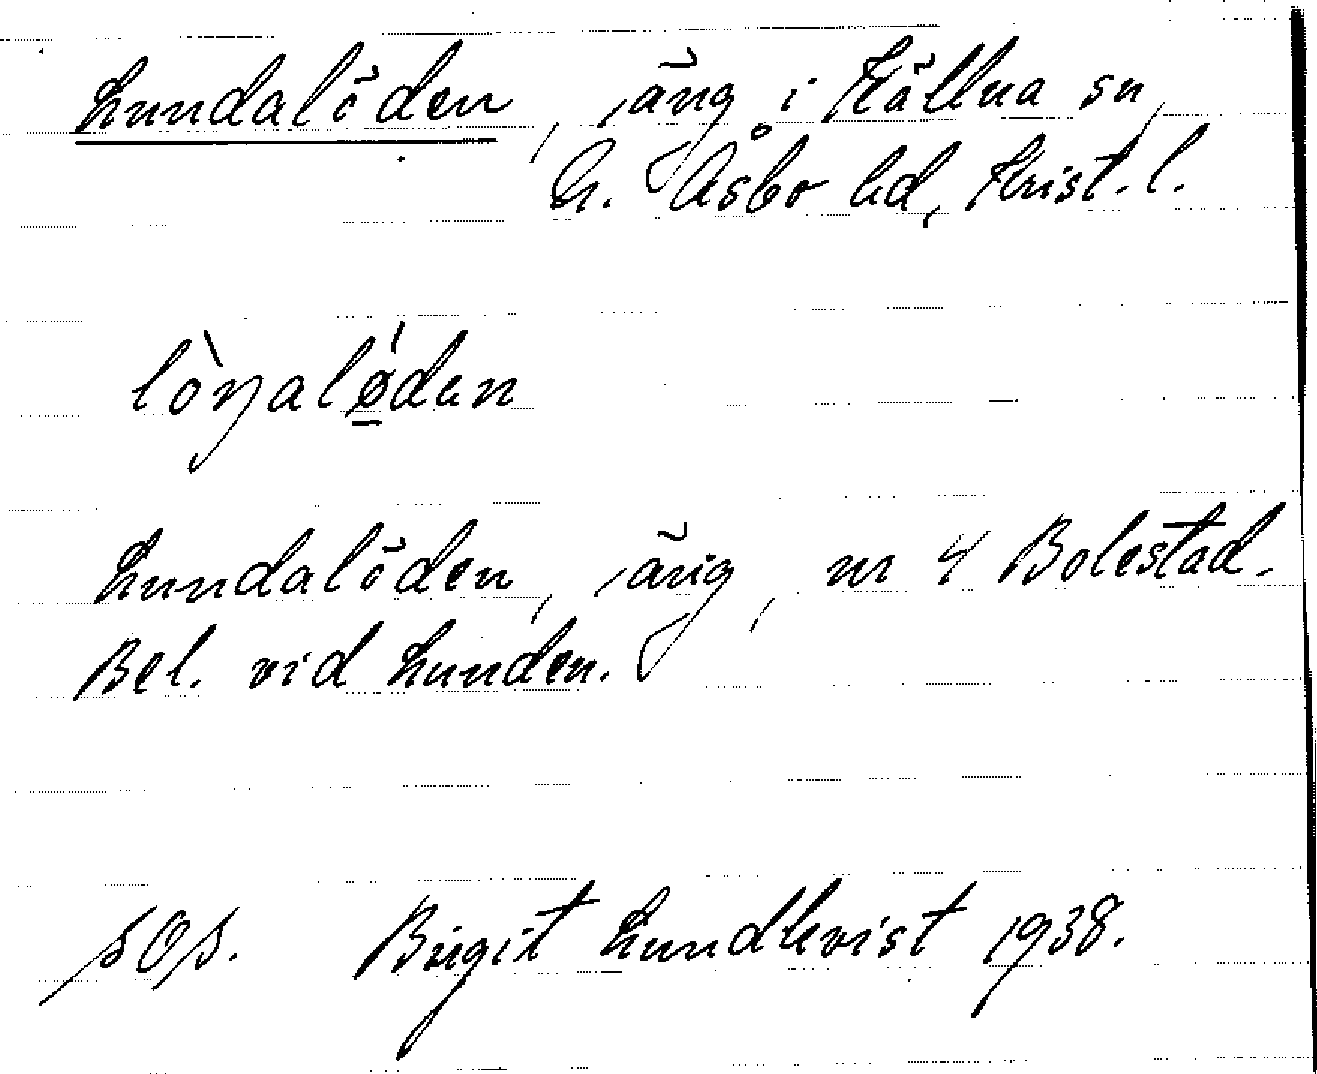 Lundalöden, äng i Källna sn,
N. Åsbo hd, Krist. l.
lòŋaløden
Lundalöden, äng, nr 4 Bolestad.
Bel. vid Lunden.
sOs. Birgit Lundkvist 1938.